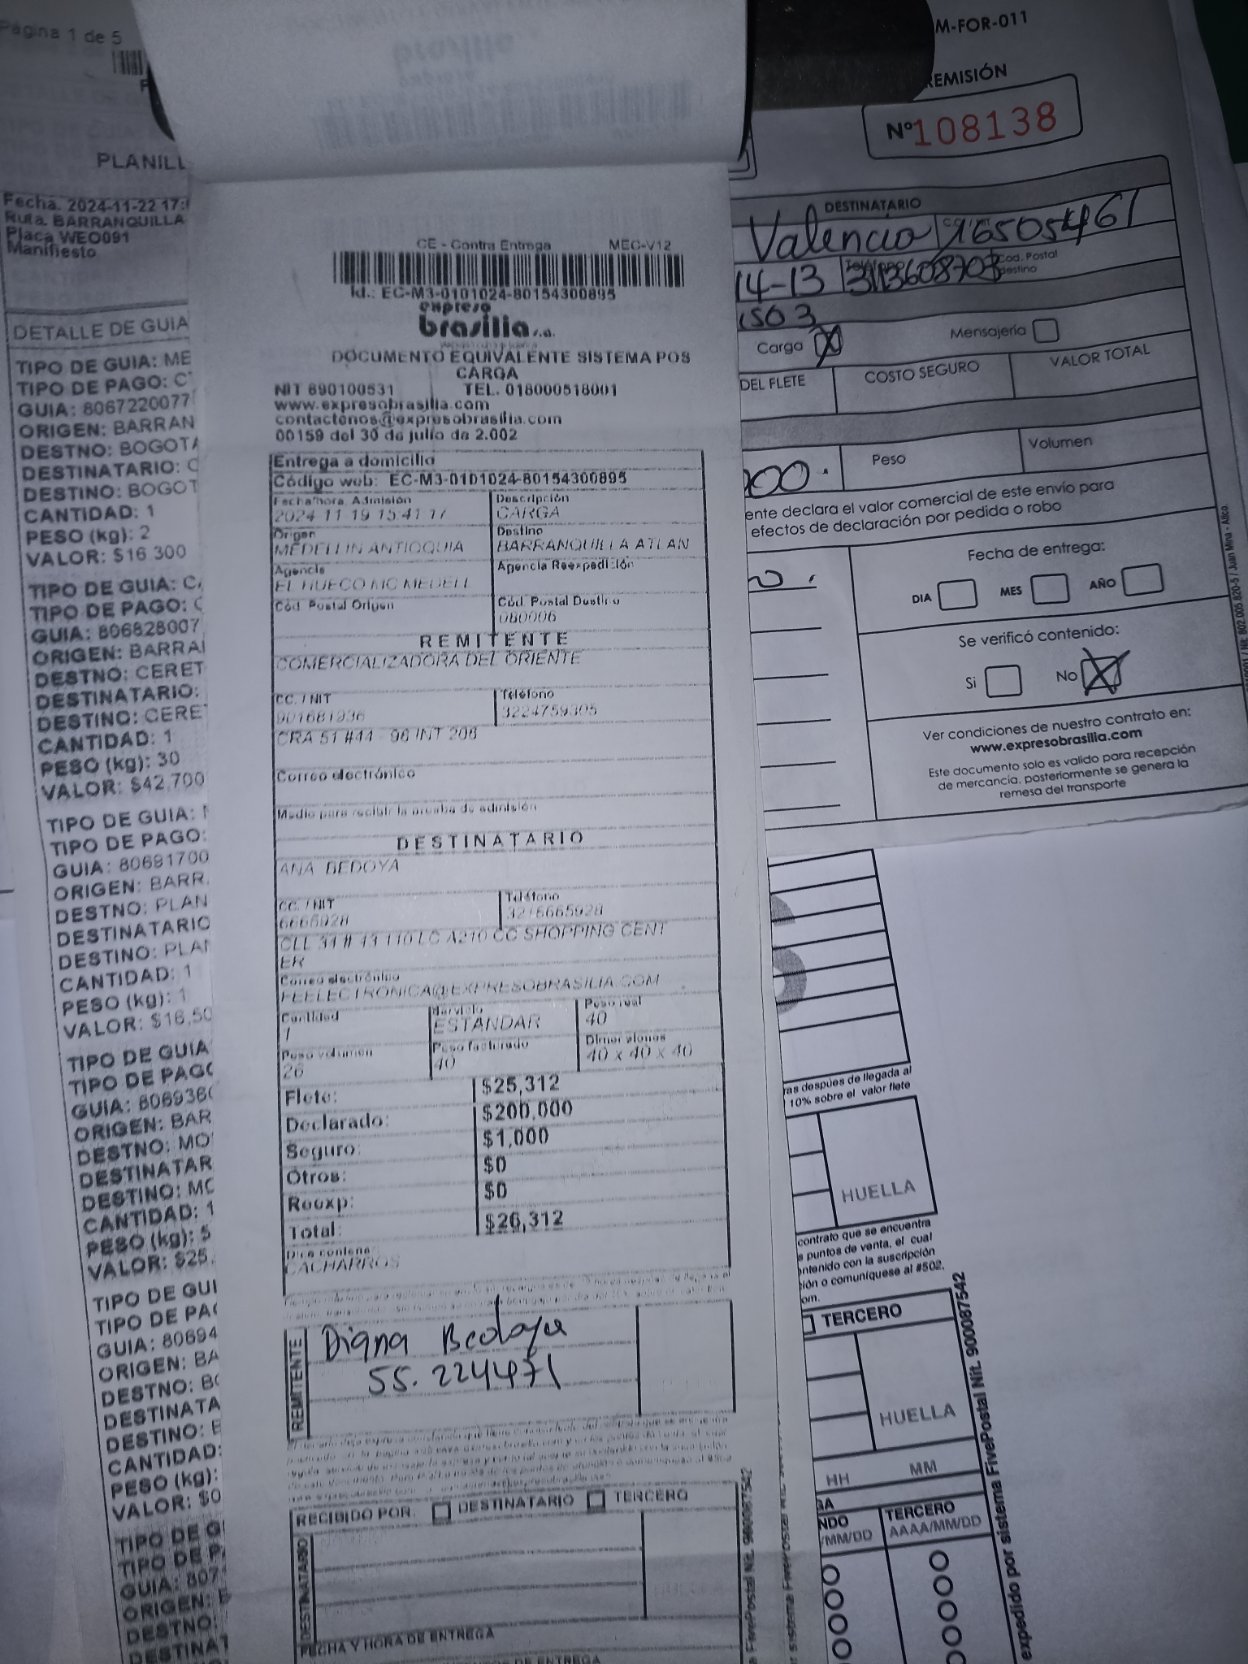 Página 1 de 5
PLANILL
Fecha. 2024-11-22 17:
Ruta. BARRANQUILLA
Placa WEO091
Manifiesto
DETALLE DE GUIA
TIPO DE GUIA: ME
TIPO DE PAGO:
GUIA: 8067220077
ORIGEN: BARRAN
DESTNO: BOGOTA
DESTINATARIO: C
DESTINO: BOGOT
CANTIDAD: 1
PESO (kg): 2
VALOR: $16.300
TIPO DE GUIA: CA
TIPO DE PAGO:
GUIA: 806828007
ORIGEN: BARRA
DESTNO: CERET
DESTINATARIO:
DESTINO: CERET
CANTIDAD: 1
PESO (kg): 30
VALOR: $42,700
TIPO DE GUIA:
TIPO DE PAGO:
GUIA: 80691700
ORIGEN: BARR
DESTNO: PLAN
DESTINATARIO
DESTINO: PLAN
CANTIDAD: 1
PESO (kg): 1
VALOR: $16,50
TIPO DE GUIA
TIPO DE PAGO
GUIA: 806936
ORIGEN: BAR
DESTNO: MO
DESTINATAR
DESTINO: MO
CANTIDAD: 1
PESO (kg): 5
VALOR: $25.
TIPO DE GUI
TIPO DE PA
GUIA: 80694
ORIGEN: BA
DESTNO: BO
DESTINATA
DESTINO: B
CANTIDAD:
PESO (kg):
VALOR: $0
TIPO DE G
TIPO DE P
GUIA: 807
ORIGEN:
DESTNO:
DESTINAT
CE - Contra Entrega MEC-V12
Id.: EC-M3-0101024-80154300895
expreso
brasilia s.a.
DOCUMENTO EQUIVALENTE SISTEMA POS
CARGA
NIT 890100531 TEL. 018000518001
www.expresobrasilia.com
contactenos@expresobrasilia.com
00159 del 30 de julio de 2.002
Entrega a domicilio
Código web: EC-M3-0101024-80154300895
Fecha/hora. Admisión Descripción
2024-11-19 15:41:17 CARGA
Origen Destino
MEDELLIN ANTIOQUIA BARRANQUILLA ATLAN
Agencia Agencia Reexpedición
EL HUECO MC MEDELL
Cód. Postal Origen Cód. Postal Destino
080006
REMITENTE
COMERCIALIZADORA DEL ORIENTE
CC. / NIT Teléfono
901681936 3224759305
CRA 51 #44 - 96 INT 206
Correo electrónico
Medio para recibir la prueba de admisión
DESTINATARIO
ANA BEDOYA
CC. / NIT Teléfono
6665928 3216665928
CLL 34 # 43 110 LC A210 CC SHOPPING CENT
ER
Correo electrónico
FEELECTRONICA@EXPRESOBRASILIA.COM
Cantidad Servicio Peso real
1 ESTANDAR 40
Peso volumen Peso facturado Dimensiones
26 40 40 x 40 x 40
Flete: $25,312
Declarado: $200,000
Seguro: $1,000
Otros: $0
Reexp: $0
Total: $26,312
Dice contener
CACHARROS
REMITENTE
Diana Bedoya
55.224471
RECIBIDO POR: DESTINATARIO TERCERO
DESTINATARIO
FECHA Y HORA DE ENTREGA
FivePostal Nit. 900087542
M-FOR-011
REMISIÓN
Nº 108138
DESTINATARIO
Valencia 16505461
14-13 3113608703
Cod. Postal
destino
Carga X Mensajería
DEL FLETE COSTO SEGURO VALOR TOTAL
Peso Volumen
ente declara el valor comercial de este envío para
efectos de declaración por pedida o robo
Fecha de entrega:
DIA MES AÑO
Se verificó contenido:
Si No X
Ver condiciones de nuestro contrato en:
www.expresobrasilia.com
Este documento solo es valido para recepción
de mercancía, posteriormente se genera la
remesa del transporte
as después de llegada al
10% sobre el valor flete
HUELLA
contrato que se encuentra
s puntos de venta, el cual
ntenido con la suscripción
ión o comuníquese al #502,
om.
TERCERO
HUELLA
HH MM
NDO TERCERO
/MM/DD AAAA/MM/DD
expedido por sistema FivePostal Nit. 900087542